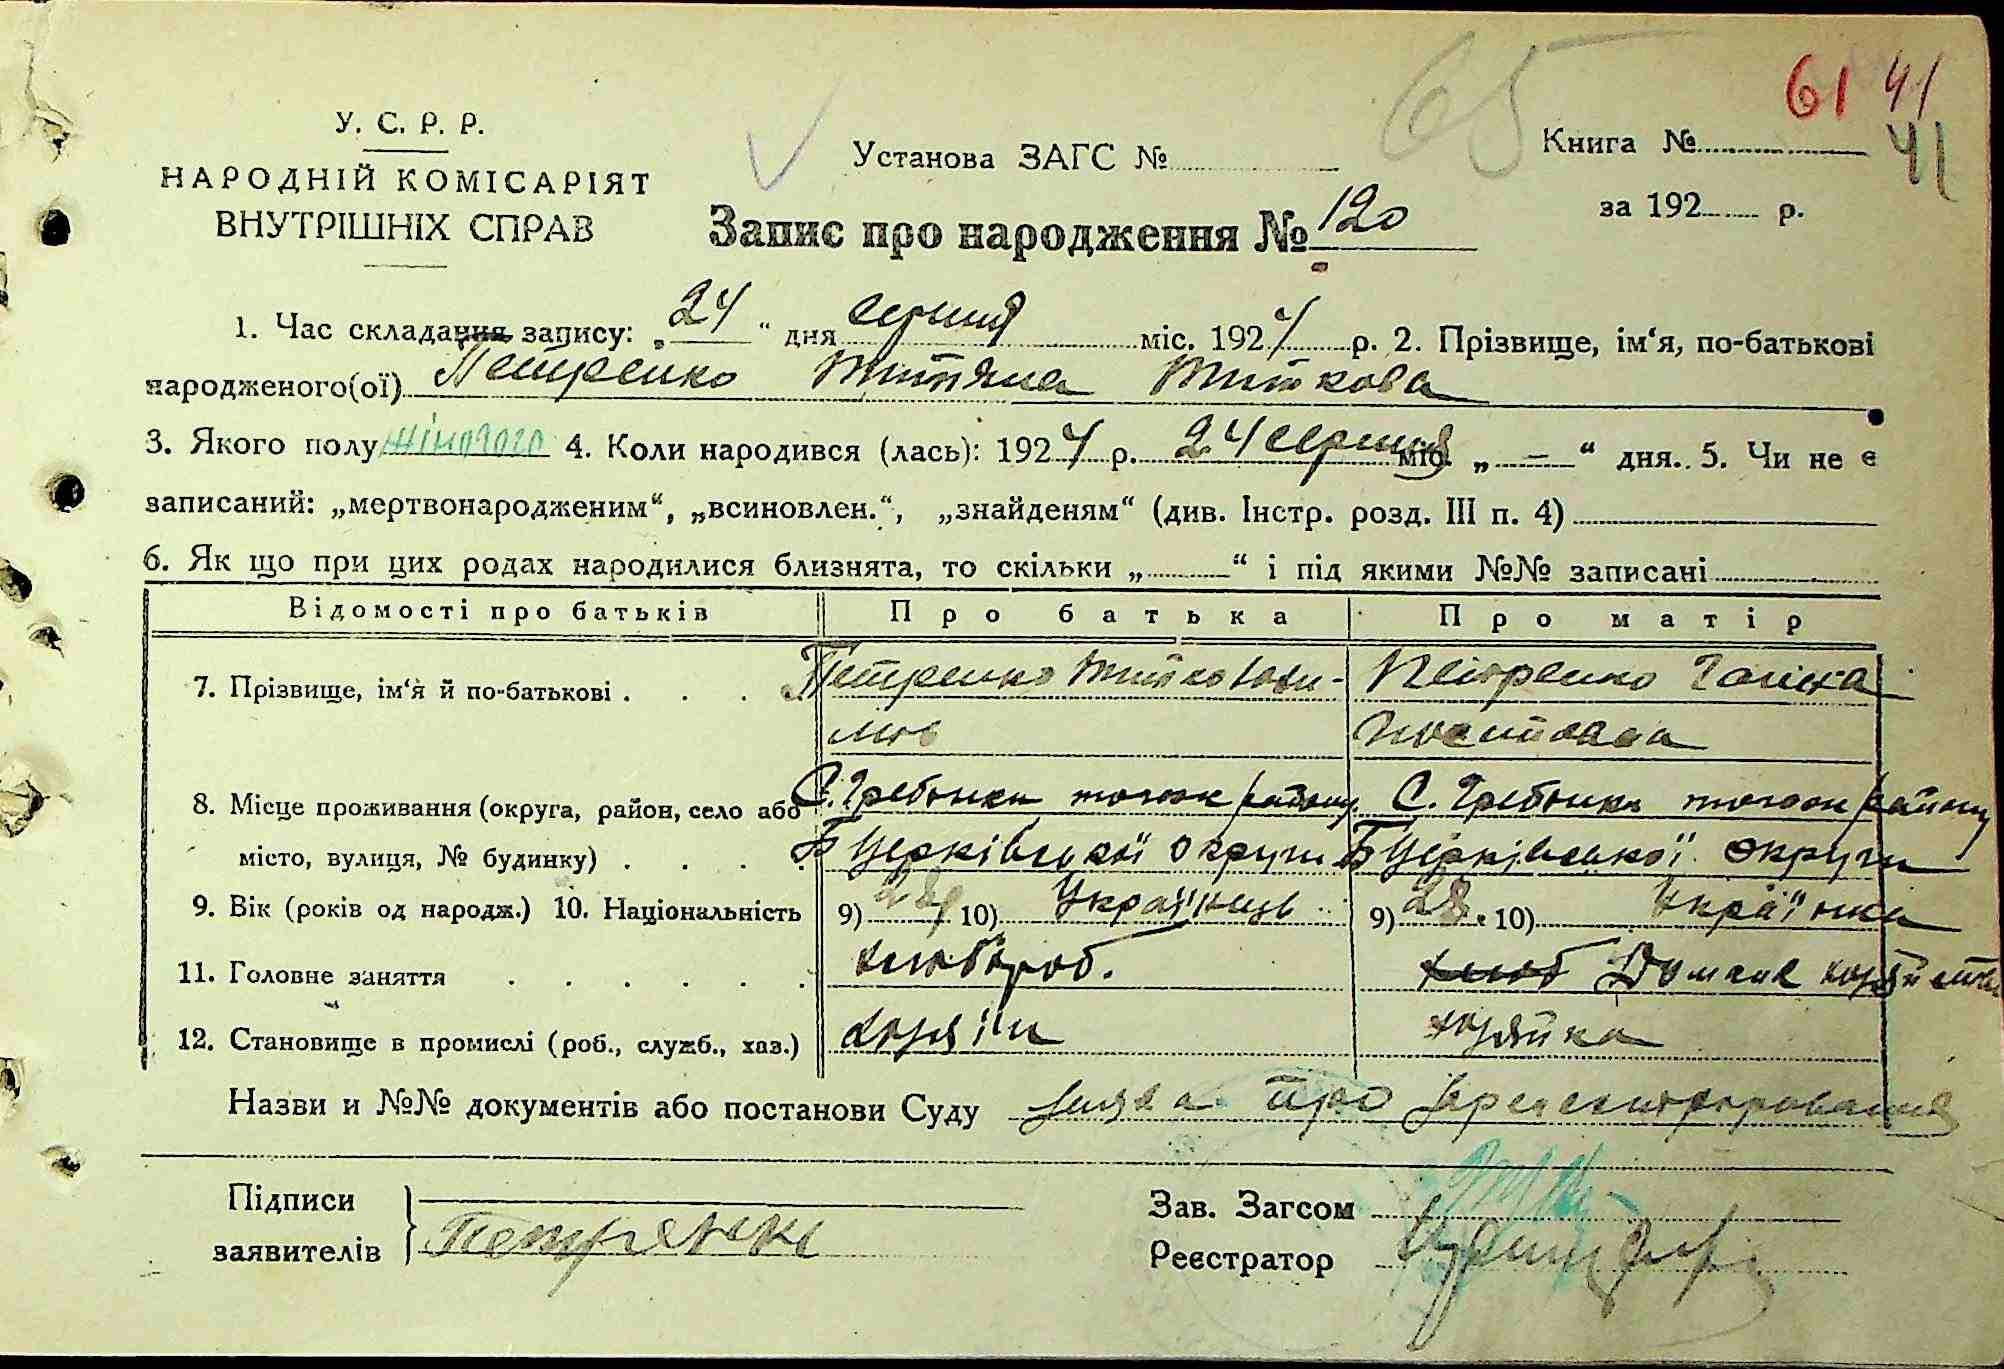 65
61 41
41
У. С. Р. Р.
НАРОДНІЙ КОМІСАРІЯТ
ВНУТРІШНІХ СПРАВ
Установа ЗАГС №
Книга №
за 192 р.
Запис про народження № 120
1. Час складання запису: „24“ дня серпня міс. 1924 р. 2. Прізвище, ім‘я, по-батькові
народженого(ої) Петренко Титяна Титкова
3. Якого полу жіночого 4. Коли народився (лась): 1924 р. 24 серпня міс. „ — “ дня. 5. Чи не є
записаний: „мертвонародженим“, „всиновлен.“, „знайденям“ (див. Інстр. розд. III п. 4)
6. Як що при цих родах народилися близнята, то скільки „ “ і під якими №№ записані
Відомості про батьків Про батька Про матір
7. Прізвище, ім‘я й по-батькові . . . Петренко Титко Петренко Галіна
8. Місце проживання (округа, район, село або С. Гребінки району С. Гребінки району
місто, вулиця, № будинку) . . . . Б Церківської округи Б Церківської округи
9. Вік (років од народж.) 10. Національність 9) 10) Українець 9) 28. 10) Українка
11. Головне заняття . . . . . . хлібороб. хліб Домашнє
12. Становище в промислі (роб., служб., хаз.) хазяїн хазяйка
Назви и №№ документів або постанови Суду заява про
Підписи
заявителів Петренко
Зав. Загсом
Реєстратор